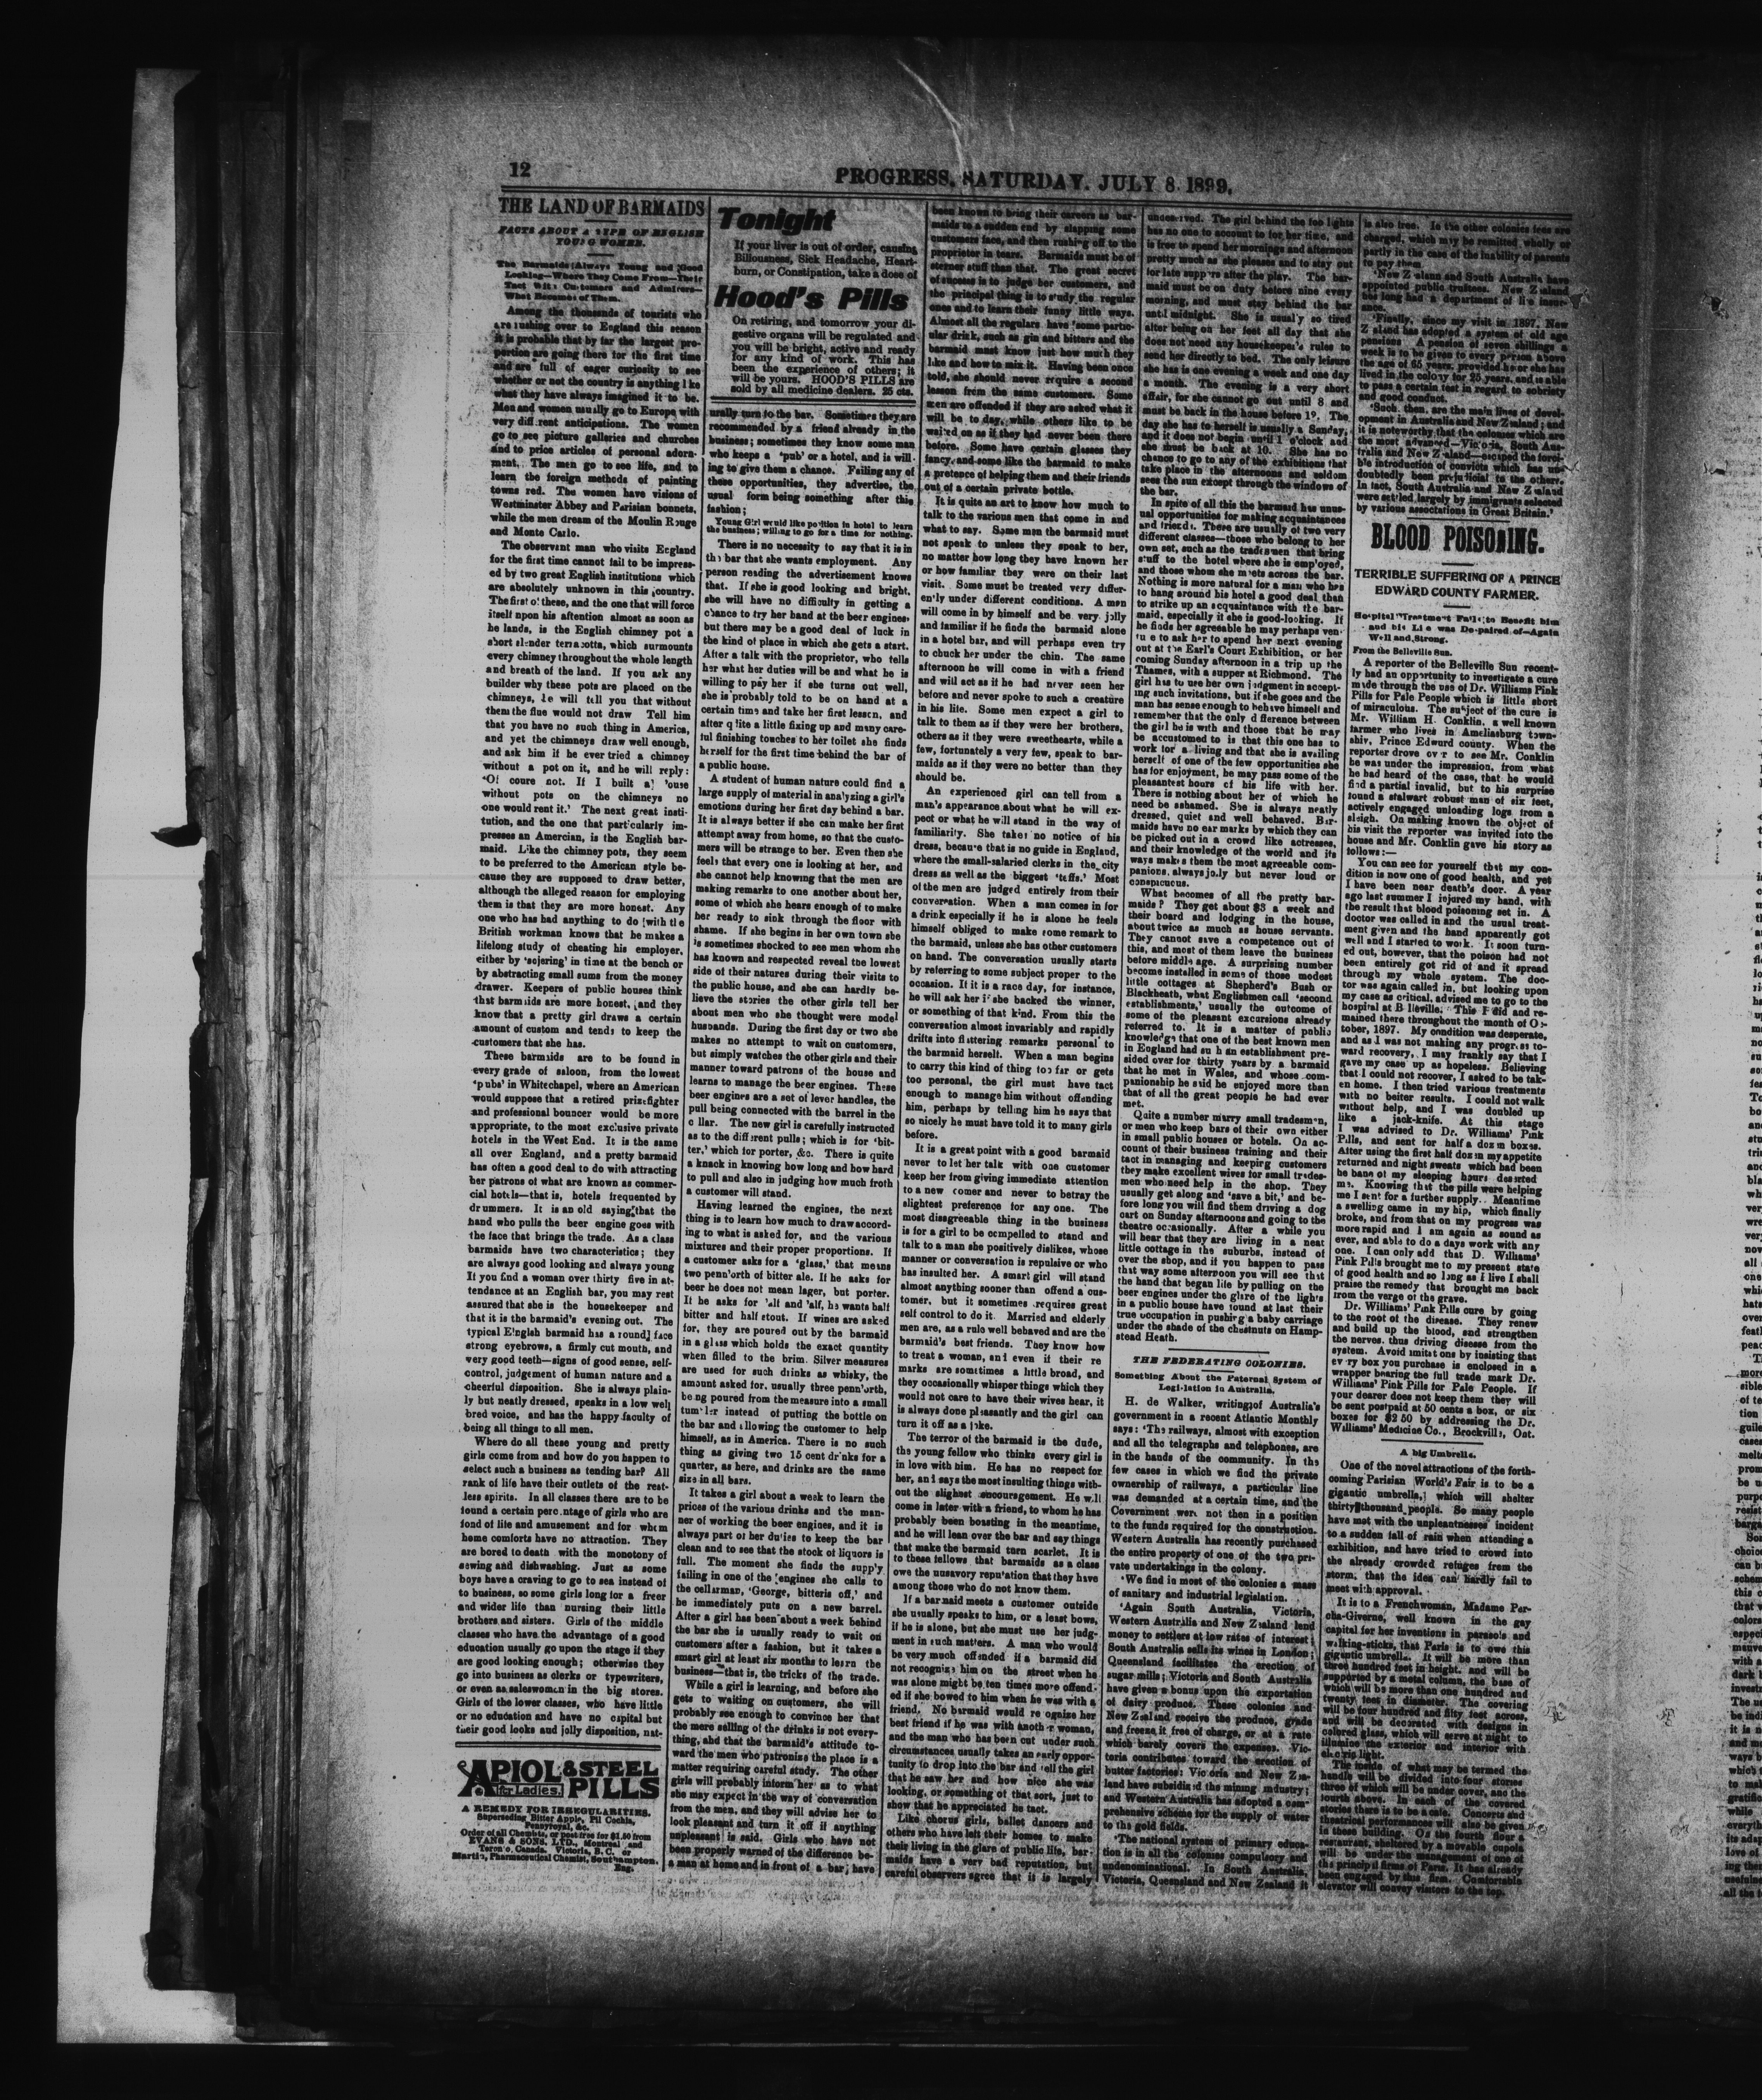 12
PROGRESS, SATURDAY, JULY 8, 1899.
THE LAND OF BARMAIDS
FACTS ABOUT A TYPE OF ENGLISH
YOUNG WOMEN.
The Barmaids Always Young and Good
Looking—Where They Come From—Their
Tact With Customers and Admirers—
What Becomes of Them.
Among the thousands of tourists who
are rushing over to England this season
it is probable that by far the largest pro-
portion are going there for the first time
and are full of eager curiosity to see
whether or not the country is anything like
what they have always imagined it to be.
Men and women usually go to Europe with
very different anticipations. The women
go to see picture galleries and churches
and to price articles of personal adorn-
ment. The men go to see life, and to
learn the foreign methods of painting
towns red. The women have visions of
Westminster Abbey and Parisian bonnets,
while the men dream of the Moulin Rouge
and Monte Carlo.
The observant man who visits England
for the first time cannot fail to be impress-
ed by two great English institutions which
are absolutely unknown in this country.
The first of these, and the one that will force
itself upon his attention almost as soon as
he lands, is the English chimney pot a
short slender terracotta, which surmounts
every chimney throughout the whole length
and breath of the land. If you ask any
builder why these pots are placed on the
chimneys, he will tell you that without
them the flue would not draw Tell him
that you have no such thing in America,
and yet the chimneys draw well enough,
and ask him if he ever tried a chimney
without a pot on it, and he will reply:
'Of coure not. If I built a 'ouse
without pots on the chimneys no
one would rent it.' The next great insti-
tution, and the one that particularly im-
presses an Amercian, is the English bar-
maid. Like the chimney pots, they seem
to be preferred to the American style be-
cause they are supposed to draw better,
although the alleged reason for employing
them is that they are more honest. Any
one who has had anything to do with the
British workman knows that he makes a
lifelong study of cheating his employer,
either by 'sojering' in time at the bench or
by abstracting small sums from the money
drawer. Keepers of public houses think
that barmaids are more honest, and they
know that a pretty girl draws a certain
amount of custom and tends to keep the
customers that she has.
These barmaids are to be found in
every grade of saloon, from the lowest
'pubs' in Whitechapel, where an American
would suppose that a retired prizefighter
and professional bouncer would be more
appropriate, to the most exclusive private
hotels in the West End. It is the same
all over England, and a pretty barmaid
has often a good deal to do with attracting
her patrons of what are known as commer-
cial hotels—that is, hotels frequented by
drummers. It is an old saying that the
hand who pulls the beer engine goes with
the face that brings the trade. As a class
barmaids have two characteristics; they
are always good looking and always young
If you find a woman over thirty five in at-
tendance at an English bar, you may rest
assured that she is the housekeeper and
that it is the barmaid's evening out. The
typical English barmaid has a round face
strong eyebrows, a firmly cut mouth, and
very good teeth—signs of good sense, self-
control, judgement of human nature and a
cheerful disposition. She is always plain-
ly but neatly dressed, speaks in a low well
bred voice, and has the happy faculty of
being all things to all men.
Where do all these young and pretty
girls come from and how do you happen to
select such a business as tending bar? All
rank of life have their outlets of the rest-
less spirits. In all classes there are to be
found a certain percentage of girls who are
fond of life and amusement and for whom
home comforts have no attraction. They
are bored to death with the monotony of
sewing and dishwashing. Just as some
boys have a craving to go to sea instead of
to business, so some girls long for a freer
and wider life than nursing their little
brothers and sisters. Girls of the middle
classes who have the advantage of a good
education usually go upon the stage if they
are good looking enough; otherwise they
go into business as clerks or typewriters,
or even as saleswomen in the big stores.
Girls of the lower classes, who have little
or no education and have no capital but
their good looks and jolly disposition, nat-
APIOL & STEEL
for Ladies. PILLS
A REMEDY FOR IRREGULARITIES.
Superseding Bitter Apple, Pil Cochia,
Pennyroyal, &c.
Order of all Chemists, or post free for $1.50 from
EVANS & SONS, LTD., Montreal and
Toronto, Canada. Victoria, B. C. or
Martin, Pharmaceutical Chemist, Southampton.
Eng.
Tonight
If your liver is out of order, causing
Biliousness, Sick Headache, Heart-
burn, or Constipation, take a dose of
Hood's Pills
On retiring, and tomorrow your di-
gestive organs will be regulated and
you will be bright, active and ready
for any kind of work. This has
been the experience of others; it
will be yours. HOOD'S PILLS are
sold by all medicine dealers. 25 cts.
urally turn to the bar. Sometimes they are
recommended by a friend already in the
business; sometimes they know some man
who keeps a 'pub' or a hotel, and is will-
ing to give them a chance. Failing any of
these opportunities, they advertise, the
usual form being something after this
fashion;
Young Girl would like position in hotel to learn
the business; willing to go for a time for nothing.
There is no necessity to say that it is in
the bar that she wants employment. Any
person reading the advertisement knows
that. If she is good looking and bright,
she will have no difficulty in getting a
chance to try her hand at the beer engines
but there may be a good deal of luck in
the kind of place in which she gets a start.
After a talk with the proprietor, who tells
her what her duties will be and what he is
willing to pay her if she turns out well,
she is probably told to be on hand at a
certain time and take her first lesson, and
after quite a little fixing up and many care-
ful finishing touches to her toilet she finds
herself for the first time behind the bar of
a public house.
A student of human nature could find a
large supply of material in analyzing a girl's
emotions during her first day behind a bar.
It is always better if she can make her first
attempt away from home, so that the custo-
mers will be strange to her. Even then she
feels that every one is looking at her, and
she cannot help knowing that the men are
making remarks to one another about her,
some of which she hears enough of to make
her ready to sink through the floor with
shame. If she begins in her own town she
is sometimes shocked to see men whom she
has known and respected reveal the lowest
side of their natures during their visits to
the public house, and she can hardly be-
lieve the stories the other girls tell her
about men who she thought were model
husbands. During the first day or two she
makes no attempt to wait on customers,
but simply watches the other girls and their
manner toward patrons of the house and
learns to manage the beer engines. These
beer engines are a set of lever handles, the
pull being connected with the barrel in the
cellar. The new girl is carefully instructed
as to the different pulls; which is for 'bit-
ter,' which for porter, &c. There is quite
a knack in knowing how long and how hard
to pull and also in judging how much froth
a customer will stand.
Having learned the engines, the next
thing is to learn how much to draw accord-
ing to what is asked for, and the various
mixtures and their proper proportions. If
a customer asks for a 'glass,' that means
two penn'orth of bitter ale. If he asks for
beer he does not mean lager, but porter.
If he asks for 'alf and 'alf, he wants half
bitter and half stout. If wines are asked
for, they are poured out by the barmaid
in a glass which holds the exact quantity
when filled to the brim. Silver measures
are used for such drinks as whisky, the
amount asked for, usually three penn'orth,
being poured from the measure into a small
tumbler instead of putting the bottle on
the bar and allowing the customer to help
himself, as in America. There is no such
thing as giving two 15 cent drinks for a
quarter, as here, and drinks are the same
size in all bars.
It takes a girl about a week to learn the
prices of the various drinks and the man-
ner of working the beer engines, and it is
always part of her duties to keep the bar
clean and to see that the stock of liquors is
full. The moment she finds the supply
failing in one of the engines she calls to
the cellarman, 'George, bitteris off,' and
he immediately puts on a new barrel.
After a girl has been about a week behind
the bar she is usually ready to wait on
customers after a fashion, but it takes a
smart girl at least six months to learn the
business—that is, the tricks of the trade.
While a girl is learning, and before she
gets to waiting on customers, she will
probably see enough to convince her that
the mere selling of the drinks is not every-
thing, and that the barmaid's attitude to-
ward the men who patronise the place is a
matter requiring careful study. The other
girls will probably inform her as to what
she may expect in the way of conversation
from the men, and they will advise her to
look pleasant and turn it off if anything
unpleasant is said. Girls who have not
been properly warned of the difference be-
a man at home and in front of a bar, have
been known to bring their careers as bar-
maids to a sudden end by slapping some
customers face, and then rushing off to the
proprietor in tears. Barmaids must be of
sterner stuff than that. The great secret
of success is to judge her customers, and
the principal thing is to study the regular
ones and to learn their funny little ways.
Almost all the regulars have some partic-
ular drink, such as gin and bitters and the
barmaid must know just how much they
like and how to mix it. Having been once
told, she should never require a second
lesson from the same customers. Some
men are offended if they are asked what it
will be to day, while others like to be
waited on as if they had never been there
before. Some have certain glasses they
fancy, and some like the barmaid to make
a pretence of helping them and their friends
out of a certain private bottle.
It is quite an art to know how much to
talk to the various men that come in and
what to say. Some men the barmaid must
not speak to unless they speak to her,
no matter how long they have known her
or how familiar they were on their last
visit. Some must be treated very differ-
ently under different conditions. A man
will come in by himself and be very jolly
and familiar if he finds the barmaid alone
in a hotel bar, and will perhaps even try
to chuck her under the chin. The same
afternoon he will come in with a friend
and will act as if he had never seen her
before and never spoke to such a creature
in his life. Some men expect a girl to
talk to them as if they were her brothers,
others as if they were sweethearts, while a
few, fortunately a very few, speak to bar-
maids as if they were no better than they
should be.
An experienced girl can tell from a
man's appearance about what he will ex-
pect or what he will stand in the way of
familiarity. She takes no notice of his
dress, because that is no guide in England,
where the small-salaried clerks in the city
dress as well as the biggest 'toffs.' Most
of the men are judged entirely from their
conversation. When a man comes in for
a drink especially if he is alone he feels
himself obliged to make some remark to
the barmaid, unless she has other customers
on hand. The conversation usually starts
by referring to some subject proper to the
occasion. If it is a race day, for instance,
he will ask her if she backed the winner,
or something of that kind. From this the
conversation almost invariably and rapidly
drifts into flattering remarks personal to
the barmaid herself. When a man begins
to carry this kind of thing too far or gets
too personal, the girl must have tact
enough to manage him without offending
him, perhaps by telling him he says that
so nicely he must have told it to many girls
before.
It is a great point with a good barmaid
never to let her talk with one customer
keep her from giving immediate attention
to a new comer and never to betray the
slightest preference for any one. The
most disagreeable thing in the business
is for a girl to be compelled to stand and
talk to a man she positively dislikes, whose
manner or conversation is repulsive or who
has insulted her. A smart girl will stand
almost anything sooner than offend a cus-
tomer, but it sometimes requires great
self control to do it. Married and elderly
men are, as a rule well behaved and are the
barmaid's best friends. They know how
to treat a woman, and even if their re
marks are sometimes a little broad, and
they occasionally whisper things which they
would not care to have their wives hear, it
is always done pleasantly and the girl can
turn it off as a joke.
The terror of the barmaid is the dude,
the young fellow who thinks every girl is
in love with him. He has no respect for
her, and says the most insulting things with-
out the slighest encouragement. He will
come in later with a friend, to whom he has
probably been boasting in the meantime,
and he will lean over the bar and say things
that make the barmaid turn scarlet. It is
to these fellows that barmaids as a class
owe the unsavory reputation that they have
among those who do not know them.
If a barmaid meets a customer outside
she usually speaks to him, or a least bows,
if he is alone, but she must use her judg-
ment in such matters. A man who would
be very much offended if a barmaid did
not recognize him on the street when he
was alone might be ten times more offend-
ed if she bowed to him when he was with a
friend. No barmaid would recognize her
best friend if he was with another woman,
and the man who has been cut under such
circumstances usually takes an early oppor-
tunity to drop into the bar and tell the girl
that he saw her and how nice she was
looking, or something of that sort, just to
show that he appreciated he tact.
Like chorus girls, ballet dancers and
others who have left their homes to make
their living in the glare of public life, bar-
maids have a very bad reputation, but
careful observers agree that it is largely
undeserved. The girl behind the foo lights
has no one to account to for her time, and
is free to spend her mornings and afternoon
pretty much as she pleases and to stay out
for late suppers after the play. The bar-
maid must be on duty before nine every
morning, and must stay behind the bar
until midnight. She is usually so tired
after being on her feet all day that she
does not need any housekeeper's rules to
send her directly to bed. The only leisure
she has is one evening a week and one day
a month. The evening is a very short
affair, for she cannot go out until 8 and
must be back in the house before 10. The
day she has to herself is usually a Sunday,
and it does not begin until 1 o'clock and
she must be back at 10. She has no
chance to go to any of the exhibitions that
take place in the afternoons and seldom
sees the sun except through the windows of
the bar.
In spite of all this the barmaid has unus-
ual opportunities for making acquaintances
and friends. There are usually of two very
different classes—those who belong to her
own set, such as the tradesmen that bring
stuff to the hotel where she is employed,
and those whom she meets across the bar.
Nothing is more natural for a man who has
to hang around his hotel a good deal than
to strike up an acquaintance with the bar-
maid, especially if she is good-looking. If
he finds her agreeable he may perhaps ven-
ture to ask her to spend her next evening
out at the Earl's Court Exhibition, or her
coming Sunday afternoon in a trip up the
Thames, with a supper at Richmond. The
girl has to use her own judgment in accept-
ing such invitations, but if she goes and the
man has sense enough to behave himself and
remember that the only difference between
the girl he is with and those that he may
be accustomed to is that this one has to
work for a living and that she is availing
herself of one of the few opportunities she
has for enjoyment, he may pass some of the
pleasantest hours of his life with her.
There is nothing about her of which he
need be ashamed. She is always neatly
dressed, quiet and well behaved. Bar-
maids have no ear marks by which they can
be picked out in a crowd like actresses,
and their knowledge of the world and its
ways makes them the most agreeable com-
panions, always joly but never loud or
conspicuous.
What becomes of all the pretty bar-
maids? They get about $3 a week and
their board and lodging in the house,
about twice as much as house servants.
They cannot save a competence out of
this, and most of them leave the business
before middle age. A surprising number
become installed in some of those modest
little cottages at Shepherd's Bush or
Blackheath, what Englishmen call 'second
establishments,' usually the outcome of
some of the pleasant excursions already
referred to. It is a matter of public
knowledge that one of the best known men
in England had such an establishment pre-
sided over for thirty years by a barmaid
that he met in Wales, and whose com-
panionship he said he enjoyed more than
that of all the great people he had ever
met.
Quite a number marry small tradesmen,
or men who keep bars of their own either
in small public houses or hotels. On ac-
count of their business training and their
tact in managing and keeping customers
they make excellent wives for small trades-
men who need help in the shop. They
usually get along and 'save a bit,' and be-
fore long you will find them driving a dog
cart on Sunday afternoons and going to the
theatre occasionally. After a while you
will hear that they are living in a neat
little cottage in the suburbs, instead of
over the shop, and if you happen to pass
that way some afternoon you will see that
the hand that began life by pulling on the
beer engines under the glare of the lights
in a public house have found at last their
true occupation in pushing a baby carriage
under the shade of the chestnuts on Hamp-
stead Heath.
THE FEDERATING COLONIES.
Something About the Paternal System of
Legislation in Australia.
H. de Walker, writing of Australia's
government in a recent Atlantic Monthly
says: 'The railways, almost with exception
and all the telegraphs and telephones, are
in the hands of the community. In the
few cases in which we find the private
ownership of railways, a particular line
was demanded at a certain time, and the
Government were not then in a position
to the funds required for the construction.
Western Australia has recently purchased
the entire property of one of the two pri-
vate undertakings in the colony.
'We find in most of the colonies a mass
of sanitary and industrial legislation.
'Again South Australia, Victoria,
Western Australia and New Zealand lend
money to settlers at low rates of interest;
South Australia sells its wines in London;
Queensland facilitates the erection of
sugar mills; Victoria and South Australia
have given a bonus upon the exportation
of dairy produce. These colonies and
New Zealand receive the produce, grade
and freeze it free of charge, or at a rate
which barely covers the expenses. Vic-
toria contributes toward the erection of
butter factories; Victoria and New Zea-
land have subsidized the mining industry;
and Western Australia has adopted a com-
prehensive scheme for the supply of water
to the gold fields.
'The national system of primary educa-
tion is in all the colonies compulsory and
undenominational. In South Australia,
Victoria, Queensland and New Zealand it
is also free. In the other colonies fees are
charged, which may be remitted wholly or
partly in the case of the inability of parents
to pay them.
'New Zealand and South Australia have
appointed public trustees. New Zealand
has long had a department of life insur-
ance.
'Finally, since my visit in 1897, New
Zealand has adopted a system of old age
pensions. A pension of seven shillings a
week is to be given to every person above
the age of 65 years, provided he or she has
lived in the colony for 25 years, and is able
to pass a certain test in regard to sobriety
and good conduct.
'Such, then, are the main lines of devel-
opment in Australia and New Zealand; and
it is noteworthy that the colonies which are
the most advanced—Victoria, South Aus-
tralia and New Zealand—escaped the forci-
ble introduction of convicts which has un-
doubtedly been prejudicial to the others.
In fact, South Australia and New Zealand
were settled largely by immigrants selected
by various associations in Great Britain.'
BLOOD POISONING.
TERRIBLE SUFFERING OF A PRINCE
EDWARD COUNTY FARMER.
Hospital Treatment Failed to Benefit him
and his Life was Despaired of—Again
Well and Strong.
From the Belleville Sun.
A reporter of the Belleville Sun recent-
ly had an opportunity to investigate a cure
made through the use of Dr. Williams Pink
Pills for Pale People which is little short
of miraculous. The subject of the cure is
Mr. William H. Conklin, a well known
farmer who lives in Ameliasburg town-
ship, Prince Edward county. When the
reporter drove over to see Mr. Conklin
he was under the impression, from what
he had heard of the case, that he would
find a partial invalid, but to his surprise
found a stalwart robust man of six feet,
actively engaged unloading logs from a
sleigh. On making known the object of
his visit the reporter was invited into the
house and Mr. Conklin gave his story as
follows:—
You can see for yourself that my con-
dition is now one of good health, and yet
I have been near death's door. A year
ago last summer I injured my hand, with
the result that blood poisoning set in. A
doctor was called in and the usual treat-
ment given and the hand apparently got
well and I started to work. It soon turn-
ed out, however, that the poison had not
been entirely got rid of and it spread
through my whole system. The doc-
tor was again called in, but looking upon
my case as critical, advised me to go to the
hospital at Belleville. This I did and re-
mained there throughout the month of Oc-
tober, 1897. My condition was desperate,
and as I was not making any progress to-
ward recovery, I may frankly say that I
gave my case up as hopeless. Believing
that I could not recover, I asked to be tak-
en home. I then tried various treatments
with no better results. I could not walk
without help, and I was doubled up
like a jack-knife. At this stage
I was advised to Dr. Williams' Pink
Pills, and sent for half a dozen boxes.
After using the first half dozen my appetite
returned and night sweats which had been
he bane of my sleeping hours deserted
me. Knowing that the pills were helping
me I sent for a further supply. Meantime
a swelling came in my hip, which finally
broke, and from that on my progress was
more rapid and I am again as sound as
ever, and able to do a days work with any
one. I can only add that D. Williams'
Pink Pills brought me to my present state
of good health and so long as I live I shall
praise the remedy that brought me back
from the verge of the grave.
Dr. Williams' Pink Pills cure by going
to the root of the disease. They renew
and build up the blood, and strengthen
the nerves, thus driving disease from the
system. Avoid imitations by insisting that
every box you purchase is enclosed in a
wrapper bearing the full trade mark Dr.
Williams' Pink Pills for Pale People. If
your dearer does not keep them they will
be sent postpaid at 50 cents a box, or six
boxes for $2 50 by addressing the Dr.
Williams' Medicine Co., Brockville, Ont.
A big Umbrella.
One of the novel attractions of the forth-
coming Parisian World's Fair is to be a
gigantic umbrella, which will shelter
thirty thousand people. So many people
have met with the unpleantnesses incident
to a sudden fall of rain when attending a
exhibition, and have tried to crowd into
the already crowded refuges from the
storm, that the idea can hardly fail to
meet with approval.
It is to a Frenchwoman, Madame Per-
cha-Giverne, well known in the gay
capital for her inventions in parasols and
walking-sticks, that Paris is to owe this
gigantic umbrella. It will be more than
three hundred feet in height, and will be
supported by a metal column, the base of
which will be more than one hundred and
twenty feet in diameter. The covering
will be four hundred and fifty feet across,
and will be decorated with designs in
colored glass, which will serve at night to
illumine the exterior and interior with
electric light.
The inside of what may be termed the
handle will be divided into four stories
three of which will be under cover, and the
fourth above. In each of the covered
stories there is to be a cafe. Concerts and
theatrical performances will also be given
in these building. On the fourth floor a
restaurant, sheltered by a movable cupola
will be under the management of one of
the principal firms of Paris. It has already
been engaged by this firm. Comfortable
elevator will convey visitors to the top.